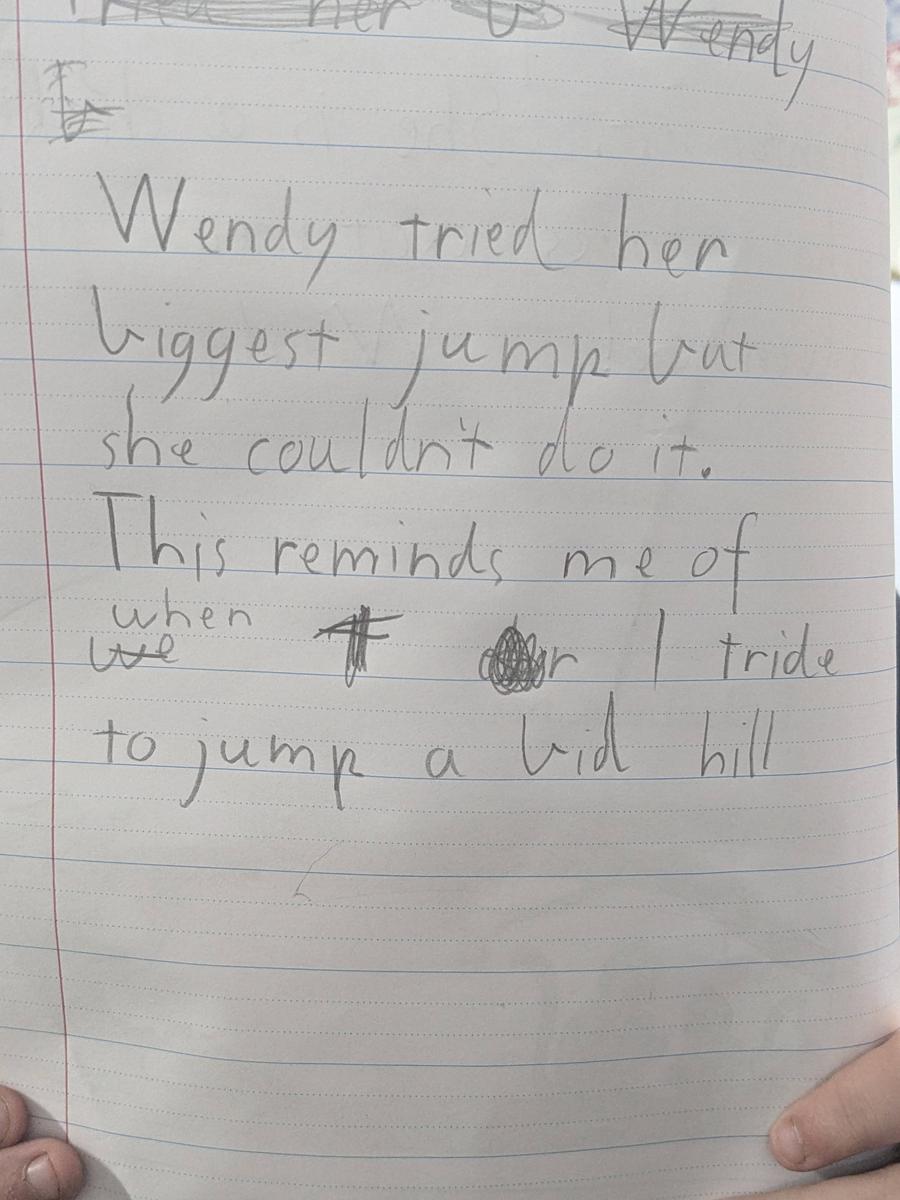 her Wendy
Wendy tried her
biggest jump but
she couldn't do it.
This reminds me of
when
we I tride
to jump a bid hill